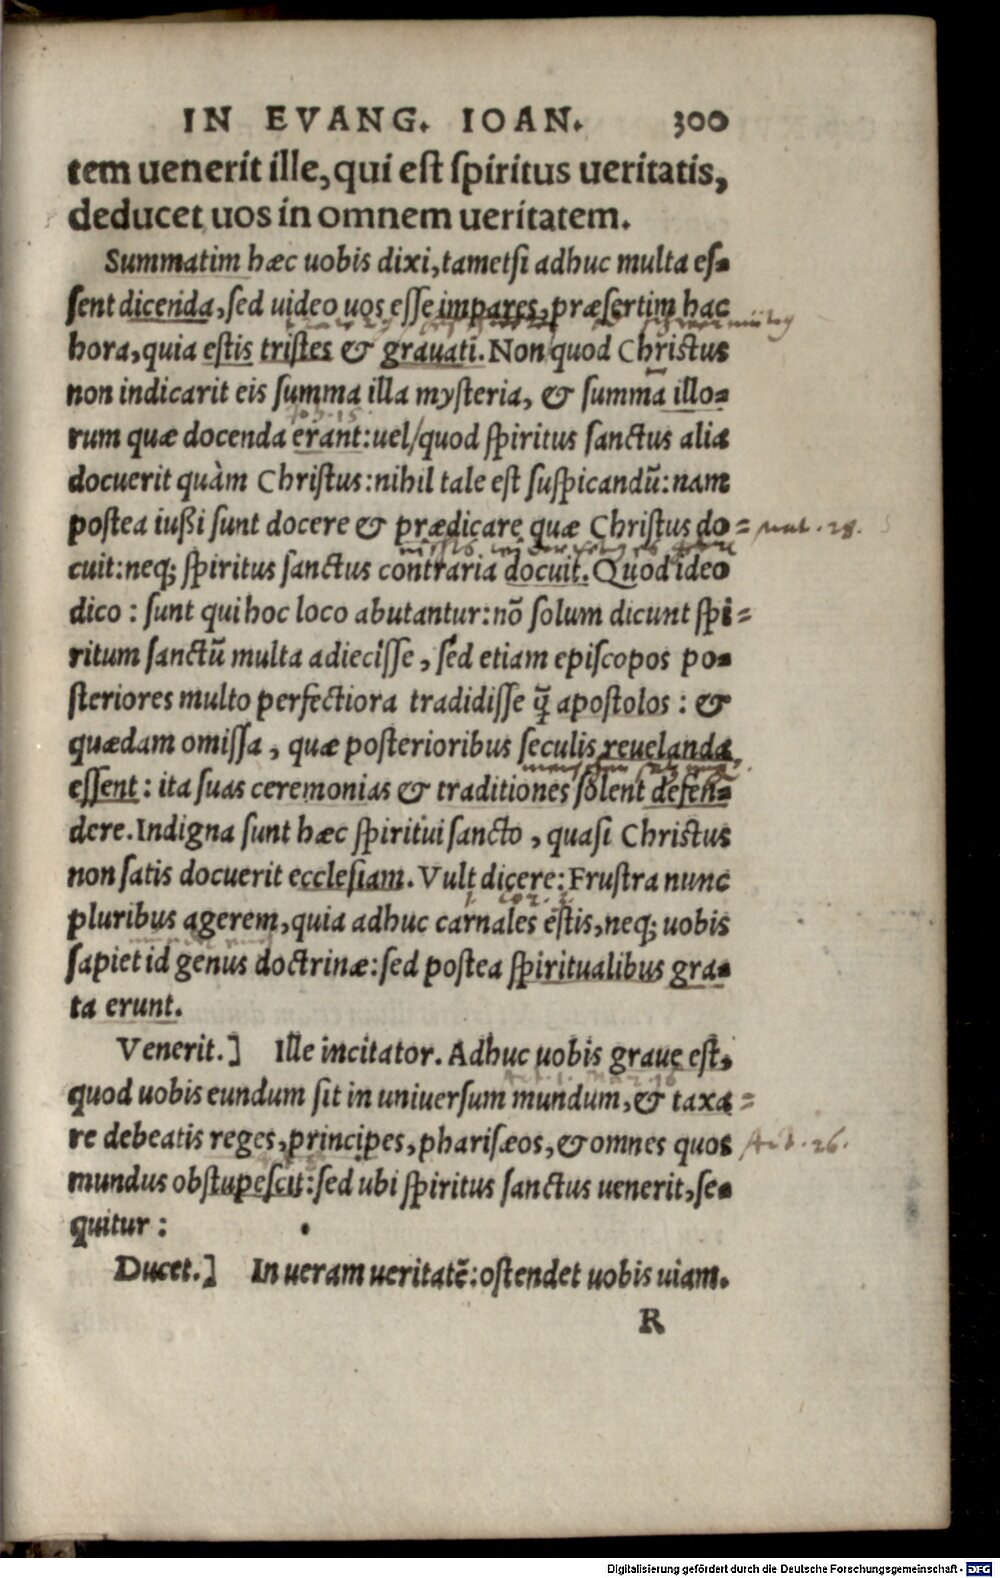 IN EVANG. IOAN. 300
tem uenerit ille, qui est spiritus ueritatis,
deducet uos in omnem ueritatem.
Summatim hæc uobis dixi, tametsi adhuc multa es-
sent dicenda, sed uideo uos esse impares, præsertim hac
hora, quia estis tristes & grauati. Non quod Christus
non indicarit eis summa illa mysteria, & summā illo-
Joh. 15.
rum quæ docenda erant: uel/quod spiritus sanctus alia
docuerit quàm Christus: nihil tale est suspicandū: nam
postea iußi sunt docere & prædicare quæ Christus do= Mat. 28.
cuit: neq; spiritus sanctus contraria docuit. Quod ideo
dico: sunt qui hoc loco abutantur: nō solum dicunt spi=
ritum sanctū multa adiecisse, sed etiam episcopos po-
steriores multo perfectiora tradidisse q̄ apostolos: &
quædam omissa, quæ posterioribus seculis reuelanda
essent: ita suas ceremonias & traditiones solent defen-
dere. Indigna sunt hæc spiritui sancto, quasi Christus
non satis docuerit ecclesiam. Vult dicere: Frustra nunc
1. Cor. 2
pluribus agerem, quia adhuc carnales estis, neq; uobis
sapiet id genus doctrinæ: sed postea spiritualibus gra-
ta erunt.
Venerit.] Ille incitator. Adhuc uobis graue est,
Act. 1. Mar. 16
quod uobis eundum sit in uniuersum mundum, & taxa=
re debeatis reges, principes, pharisæos, & omnes quos Act. 26.
mundus obstupescit: sed ubi spiritus sanctus uenerit, se-
quitur:
Ducet.] In ueram ueritatē: ostendet uobis uiam.
R
Digitalisierung gefördert durch die Deutsche Forschungsgemeinschaft - DFG